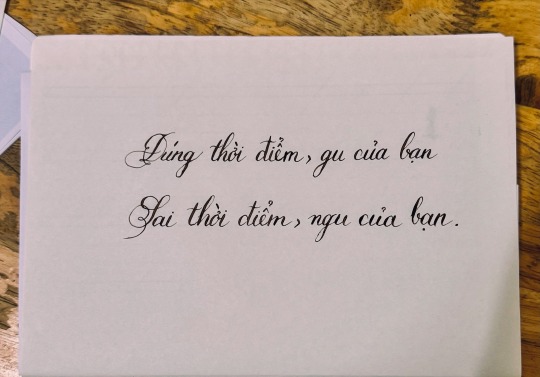 Đúng thời điểm, gu của bạn
Sai thời điểm, ngu của bạn.